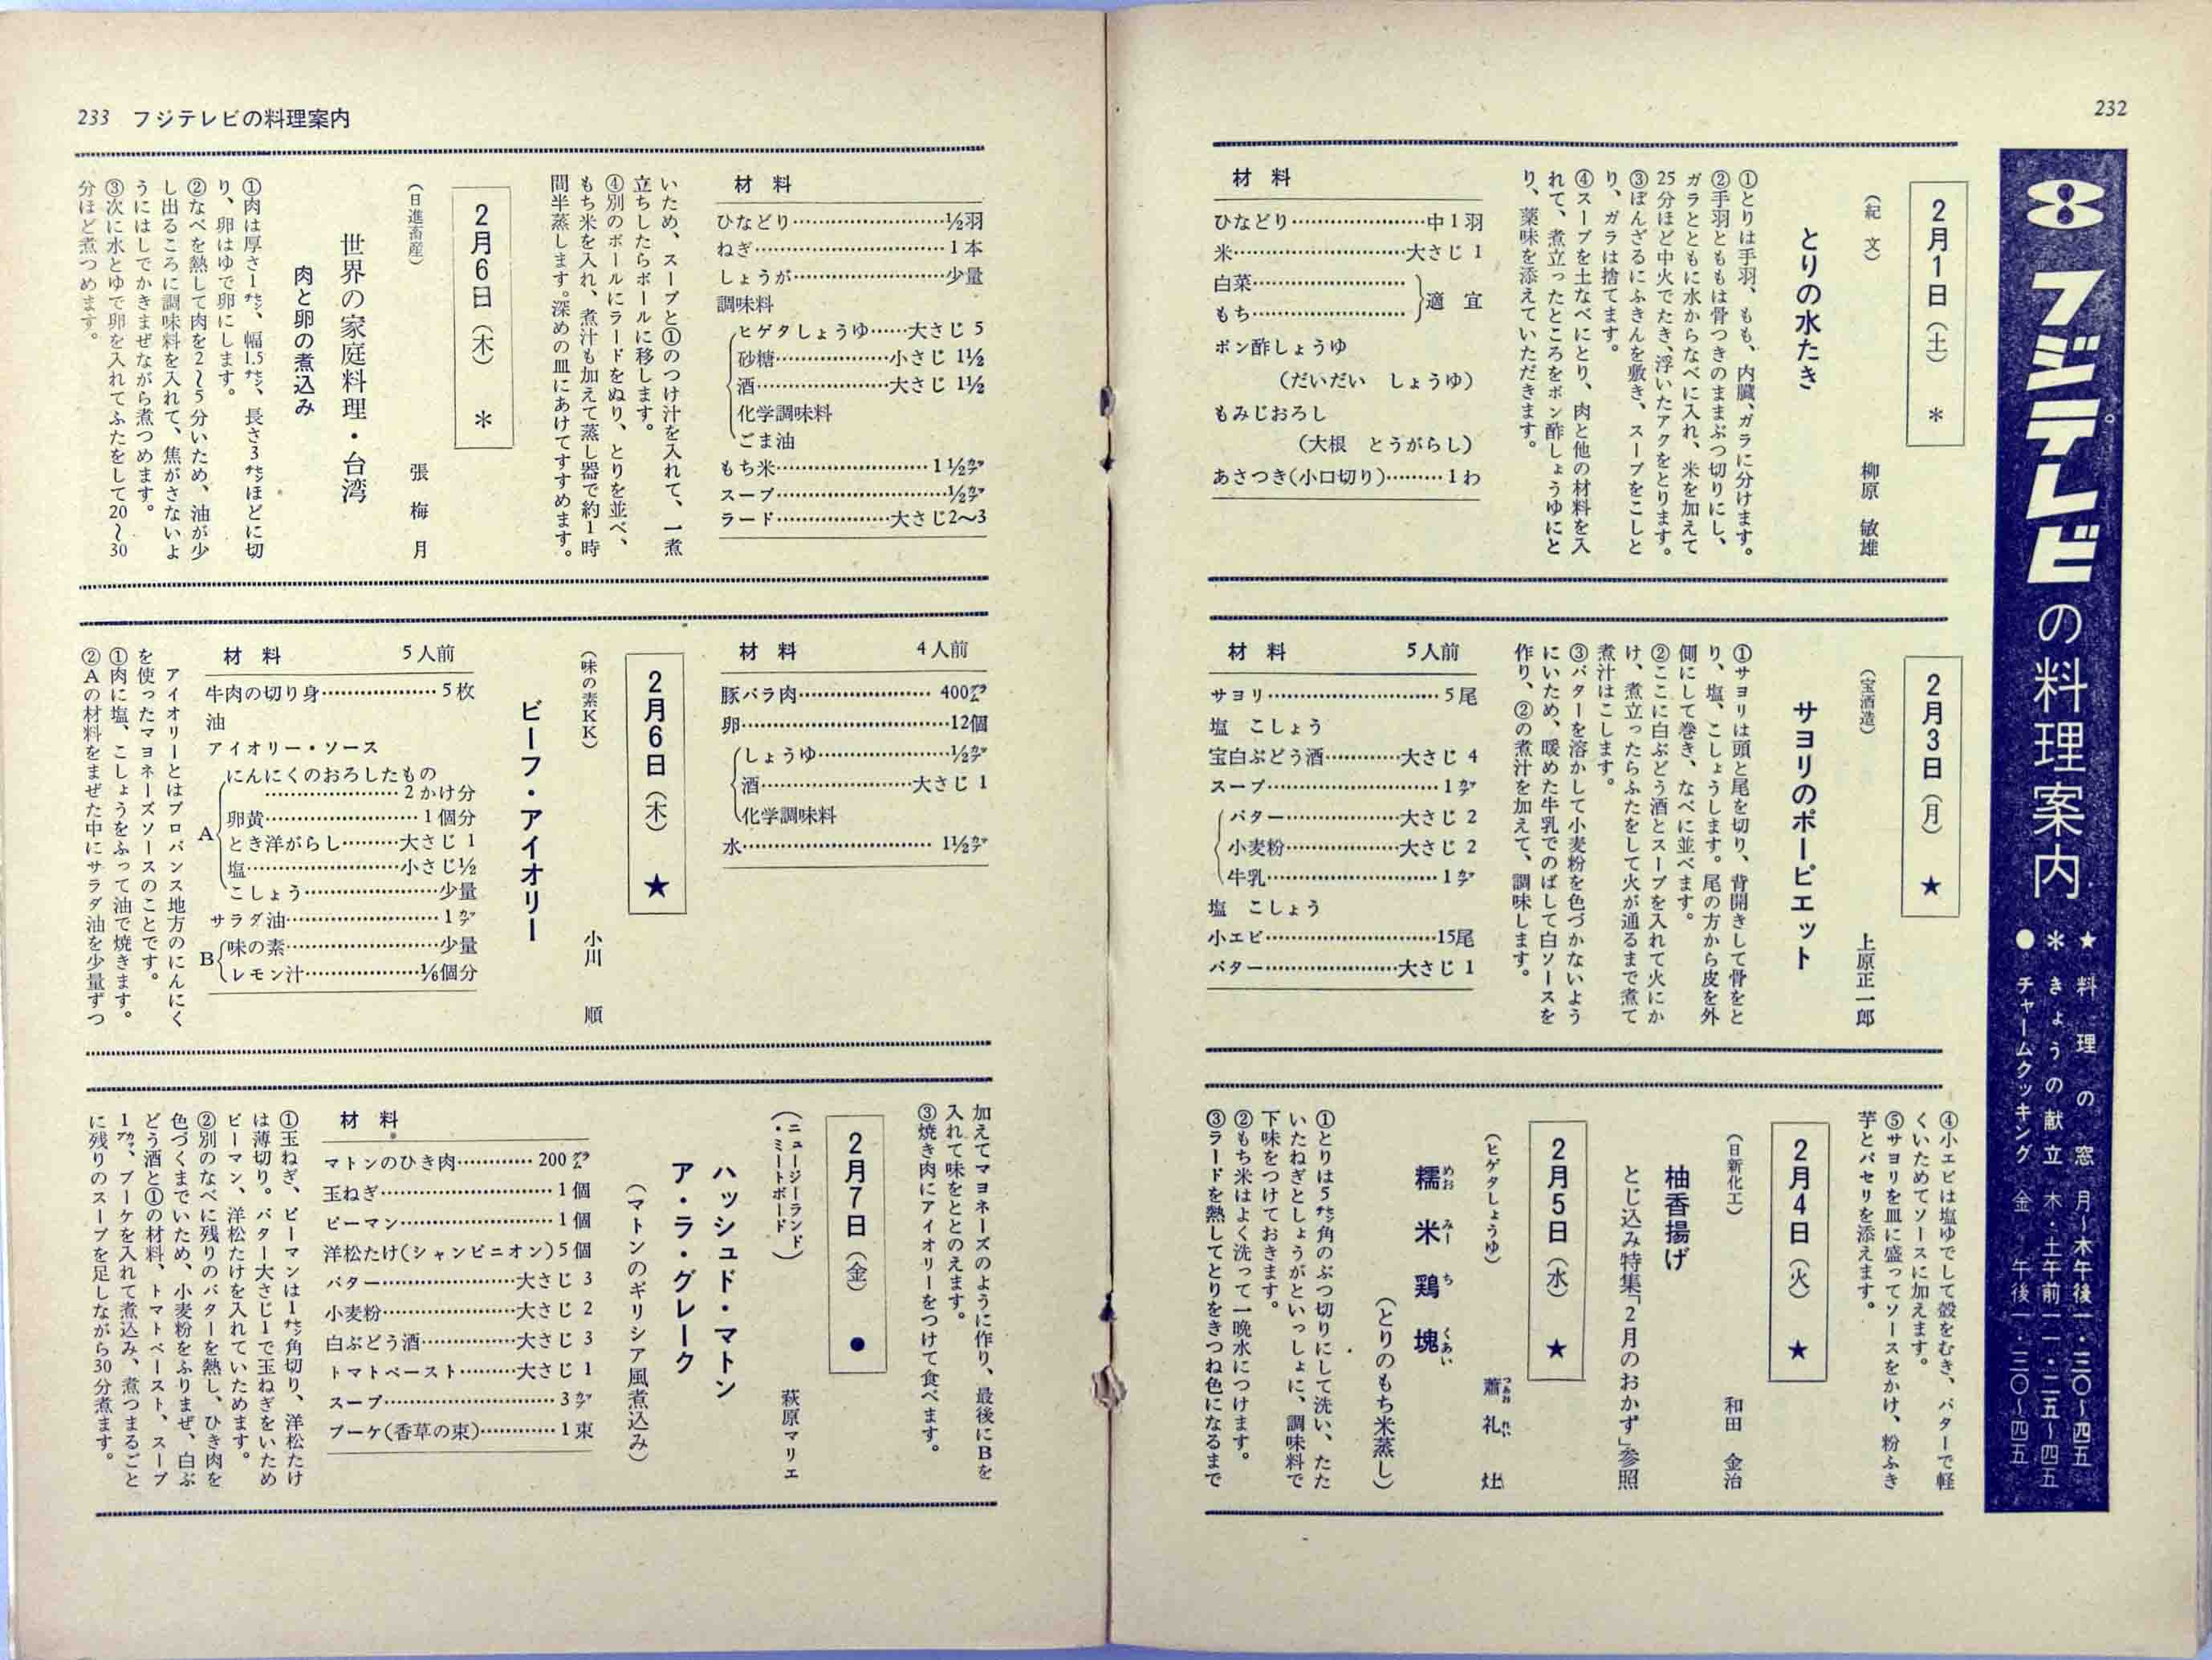 232
フジテレビの料理案内
★料理の窓 月〜木午後一・三〇〜四五
＊きょうの献立 木・土午前一一・二五〜四五
●チャームクッキング 金 午後一・三〇〜四五
2月1日（土） ＊
（紀文） 柳原 敏雄
とりの水たき
①とりは手羽、もも、内臓、ガラに分けます。
②手羽とももは骨つきのままぶつ切りにし、
ガラとともに水からなべに入れ、米を加えて
25分ほど中火でたき、浮いたアクをとります。
③ぼんざるにふきんを敷き、スープをこしと
り、ガラは捨てます。
④スープを土なべにとり、肉と他の材料を入
れて、煮立ったところをポン酢しょうゆにと
り、薬味を添えていただきます。
材料
ひなどり……中1羽
米……大さじ 1
白菜……
もち……
適宜
ポン酢しょうゆ
（だいだい しょうゆ）
もみじおろし
（大根 とうがらし）
あさつき(小口切り)……1わ
2月3日（月） ★
（宝酒造） 上原正一郎
サヨリのポーピエット
①サヨリは頭と尾を切り、背開きして骨をと
り、塩、こしょうします。尾の方から皮を外
側にして巻き、なべに並べます。
②ここに白ぶどう酒とスープを入れて火にか
け、煮立ったらふたをして火が通るまで煮て
煮汁はこします。
③バターを溶かして小麦粉を色づかないよう
にいため、暖めた牛乳でのばして白ソースを
作り、②の煮汁を加えて、調味します。
材料 5人前
サヨリ……5尾
塩 こしょう
宝白ぶどう酒……大さじ 4
スープ……1カップ
バター……大さじ 2
小麦粉……大さじ 2
牛乳……1カップ
塩 こしょう
小エビ……15尾
バター……大さじ 1
④小エビは塩ゆでして殻をむき、バターで軽
くいためてソースに加えます。
⑤サヨリを皿に盛ってソースをかけ、粉ふき
芋とパセリを添えます。
2月4日（火） ★
（日新化工） 和田 金治
柚香揚げ
とじ込み特集「2月のおかず」参照
2月5日（水） ★
（ヒゲタしょうゆ） 蕭 礼 灶
糯米鶏塊
（とりのもち米蒸し）
①とりは5センチ角のぶつ切りにして洗い、たた
いたねぎとしょうがといっしょに、調味料で
下味をつけておきます。
②もち米はよく洗って一晩水につけます。
③ラードを熱してとりをきつね色になるまで
233 フジテレビの料理案内
材料
ひなどり……½羽
ねぎ……1本
しょうが……少量
調味料
ヒゲタしょうゆ……大さじ 5
砂糖……小さじ 1½
酒……大さじ 1½
化学調味料
ごま油
もち米……1½カップ
スープ……½カップ
ラード……大さじ2〜3
いため、スープと①のつけ汁を入れて、一煮
立ちしたらボールに移します。
④別のボールにラードをぬり、とりを並べ、
もち米を入れ、煮汁も加えて蒸し器で約1時
間半蒸します。深めの皿にあけてすすめます。
2月6日（木） ＊
（日進畜産） 張 梅 月
世界の家庭料理・台湾
肉と卵の煮込み
①肉は厚さ1センチ、幅1.5センチ、長さ3センチほどに切
り、卵はゆで卵にします。
②なべを熱して肉を2〜5分いため、油が少
し出るころに調味料を入れて、焦がさないよ
うにはしでかきまぜながら煮つめます。
③次に水とゆで卵を入れてふたをして20〜30
分ほど煮つめます。
材料 4人前
豚バラ肉……400グラム
卵……12個
しょうゆ……½カップ
酒……大さじ 1
化学調味料
水……1½カップ
2月6日（木） ★
（味の素KK） 小川 順
ビーフ・アイオリー
材料 5人前
牛肉の切り身……5枚
油
アイオリー・ソース
にんにくのおろしたもの
……2かけ分
卵黄……1個分
A とき洋がらし……大さじ 1
塩……小さじ½
こしょう……少量
サラダ油……1カップ
B 味の素……少量
レモン汁……⅙個分
アイオリーとはプロバンス地方のにんにく
を使ったマヨネーズソースのことです。
①肉に塩、こしょうをふって油で焼きます。
②Aの材料をまぜた中にサラダ油を少量ずつ
加えてマヨネーズのように作り、最後にBを
入れて味をととのえます。
③焼き肉にアイオリーをつけて食べます。
2月7日（金） ●
（ニュージーランド・ミートボード） 萩原マリエ
ハッシュド・マトン
ア・ラ・グレーク
（マトンのギリシア風煮込み）
材料
マトンのひき肉……200グラム
玉ねぎ……1個
ピーマン……1個
洋松たけ(シャンピニオン)5個
バター……大さじ 3
小麦粉……大さじ 2
白ぶどう酒……大さじ 3
トマトペースト……大さじ 1
スープ……3カップ
ブーケ(香草の束)……1束
①玉ねぎ、ピーマンは1センチ角切り、洋松たけ
は薄切り。バター大さじ1で玉ねぎをいため
ピーマン、洋松たけを入れていためます。
②別のなべに残りのバターを熱し、ひき肉を
色づくまでいため、小麦粉をふりまぜ、白ぶ
どう酒と①の材料、トマトペースト、スープ
1カップ、ブーケを入れて煮込み、煮つまるごと
に残りのスープを足しながら30分煮ます。